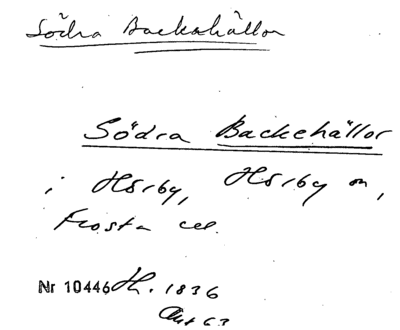 Södra Backahällor
Södra Backehällor
i Hörby, Hörby sn,
Frosta
Nr 10446 1836